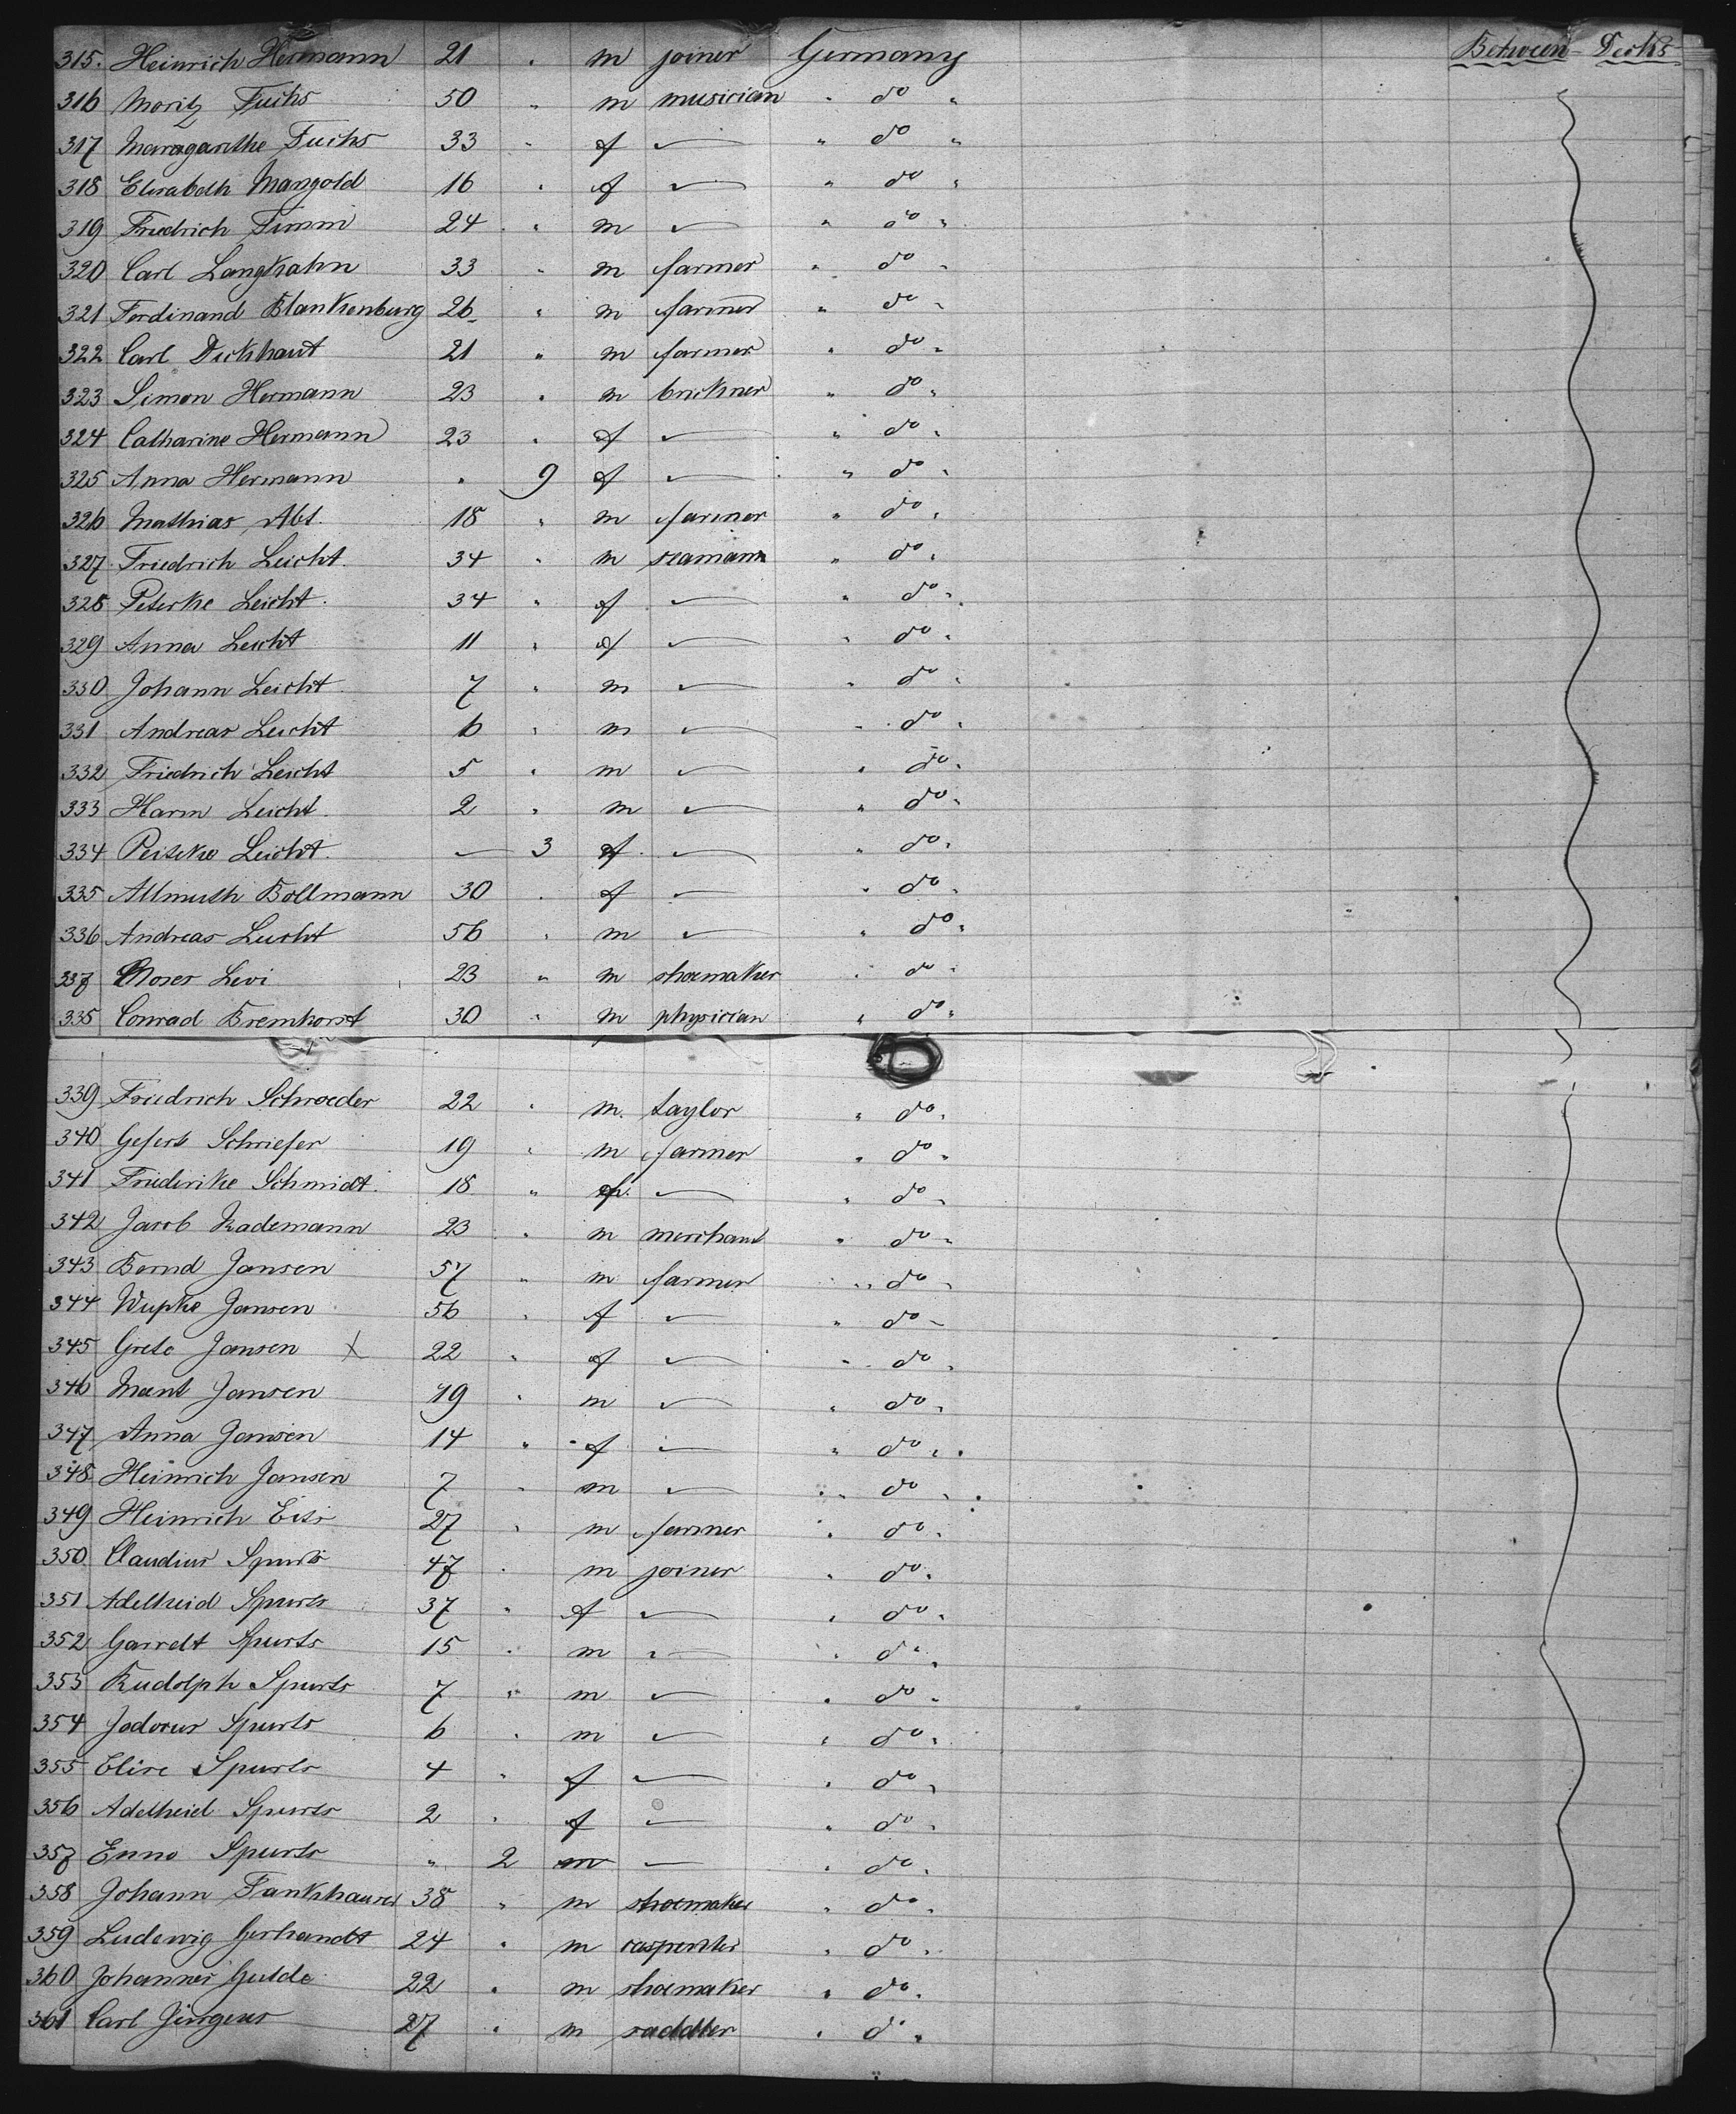 315. Heinrich Hermann 21 " m joiner Germany Between Decks
316 Moritz Fuchs 50 " m musician " do "
317 Maragarethe Fuchs 33 " f — " do "
318 Elisabeth Mangold 16 " f — " do "
319 Friedrich Timm 24 " m — " do "
320 Carl Langkahn 33 " m farmer " do "
321 Ferdinand Blankenburg 26 " m farmer " do "
322 Carl Dickhaut 21 " m farmer " do "
323 Simon Hermann 23 " m brickner " do "
324 Catharine Hermann 23 " f — " do "
325 Anna Hermann " 9 f — " do "
326 Mathias Abt. 18 " m farmer " do "
327 Friedrich Leicht. 34 " m seamann " do "
328 Peterke Leicht. 34 " f — " do "
329 Anna Leicht 11 " f — " do "
330 Johann Leicht 7 " m — " do "
331 Andreas Leicht 6 " m — " do "
332 Friedrich Leicht 5 " m — " do "
333 Harm Leicht. 2 " m — " do "
334 Leicht. — 3 f — " do "
335 Allmuth Bollmann 30 " f — " do "
336 Andreas Leicht 56 " m — " do "
337 Moses Levi 23 " m shoemaker " do "
338 Conrad Bremhorst 30 " m physician " do "
339 Friedrich Schroeder 22 " m. taylor " do "
340 Gefert Schriefer 19 " m farmer " do "
341 Friederike Schmidt. 18 " f. — " do "
342 Jacob Rademann 23 " m merchant " do "
343 Bernd Jansen 57 " m farmer " do "
344 Wupke Jansen 56 " f — " do "
345 Grete Jansen X 22 " f — " do "
346 Mant Jansen 19 " m — " do "
347 Anna Jansen 14 " f — " do "
348 Heinrich Jansen 7 " m — " do "
349 Heinrich 27 " m farmer " do "
350. Claudius Spurts 47 " m joiner " do "
351 Adelheid Spurts 37 " f — " do "
352 Garrelt Spurts 15 " m — " do "
353 Rudolph Spurts 7 " m — " do "
354 Jodocus Spurts 6 " m — " do "
355 Elise Spurts 4 " f — " do "
356 Adelheid Spurts 2 " f — " do "
357 Enno Spurts " 2 m — " do "
358 Johann Fankhauser 38 " m shoemaker " do "
359 Ludewig Gerhandt 24 " m carpenter " do "
360 Johannes Gulde 22 " m shoemaker " do "
361 Carl Jürgens 27 " m saddler " do "